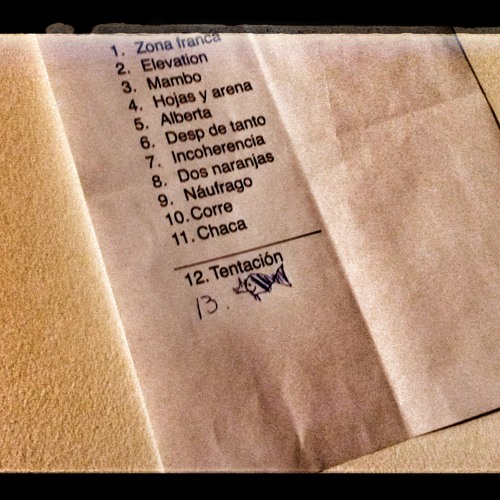 1. Zona franca
2. Elevation
3. Mambo
4. Hojas y arena
5. Alberta
6. Desp de tanto
7. Incoherencia
8. Dos naranjas
9. Náufrago
10. Corre
11. Chaca
12. Tentación
13.